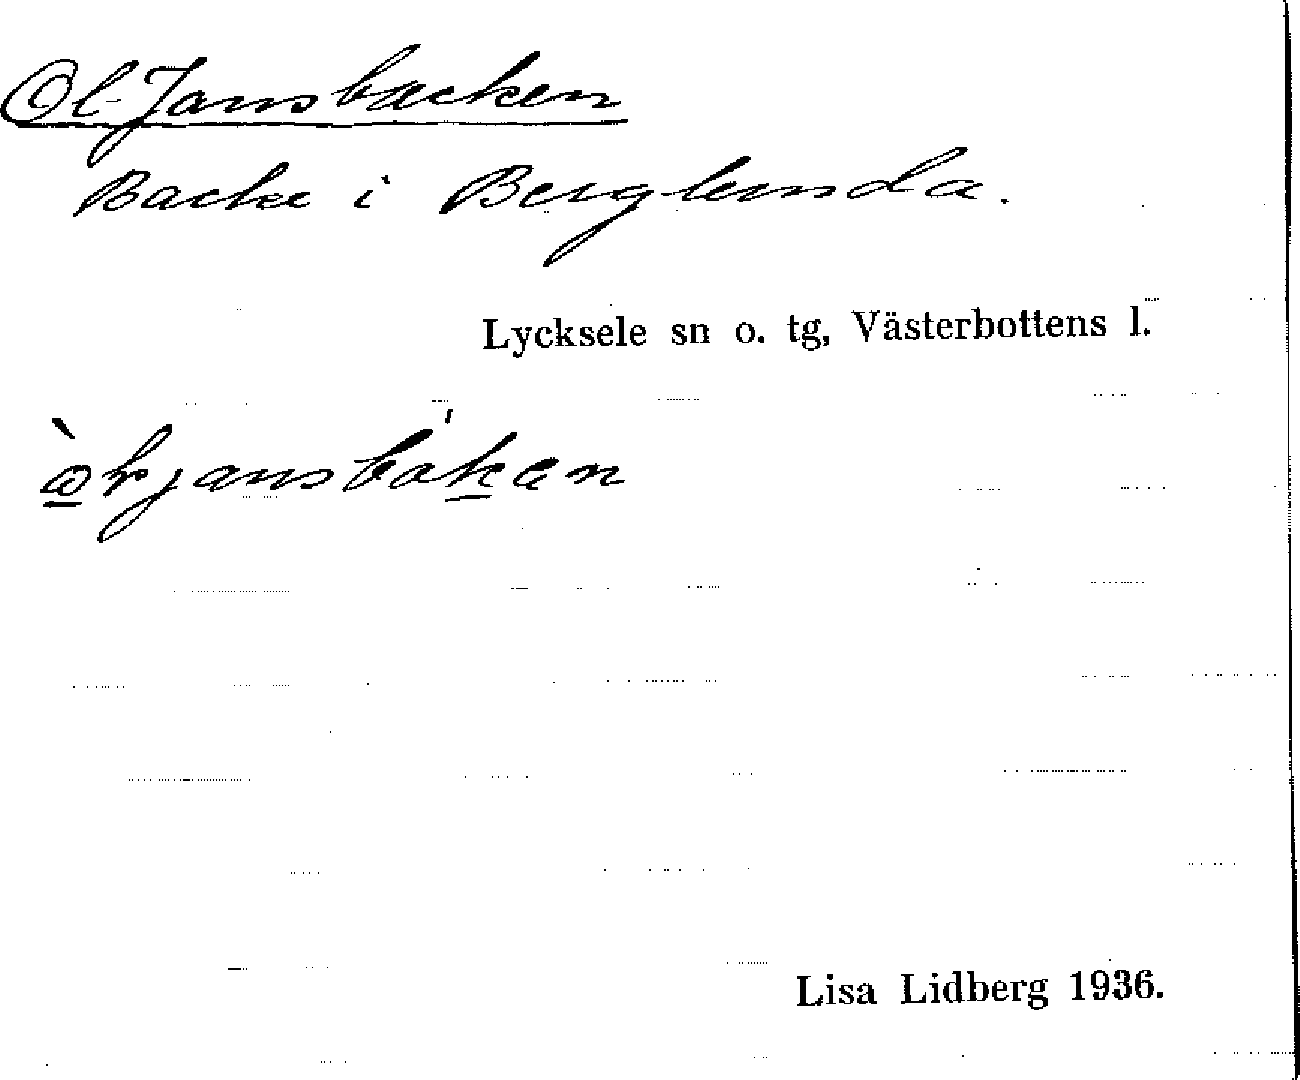 Ol-Jansbacken
Backe i Berglunda.
Lycksele sn o. tg, Västerbottens l.
Lisa Lidberg 1936.